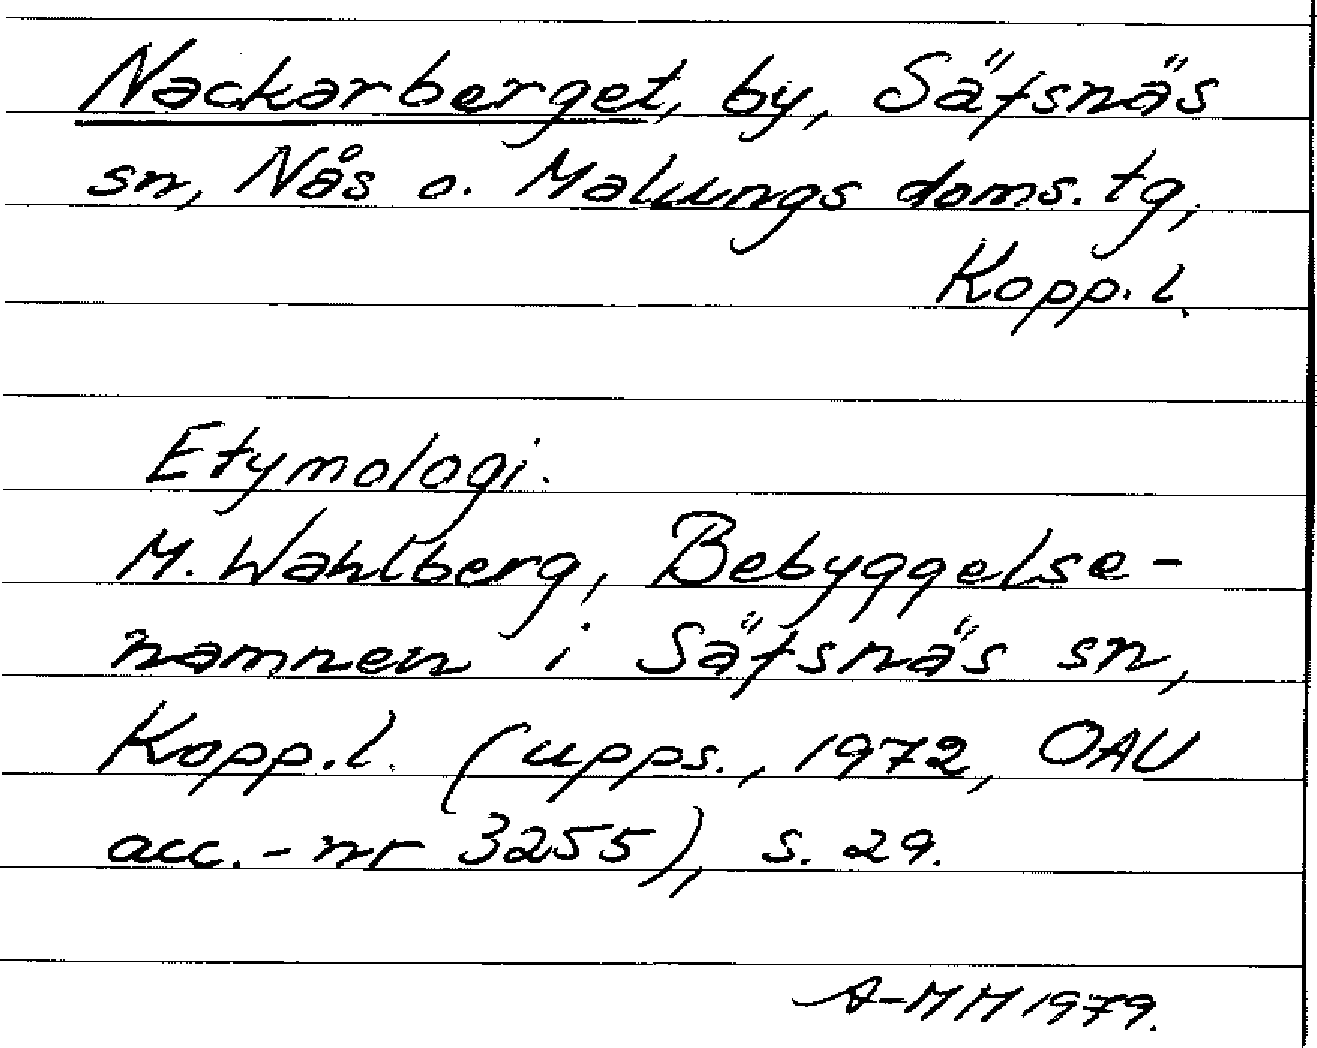 Nackarberget, by, Säfsnäs
sn, Nås o. Malungs doms. tg,
Kopp. l.
Etymologi.
M. Wahlberg, Bebyggelse-
namnen i Säfsnäs sn,
Kopp. l. (upps., 1972, OAU
acc.-nr 3255), s. 29.
A-MM 1979.